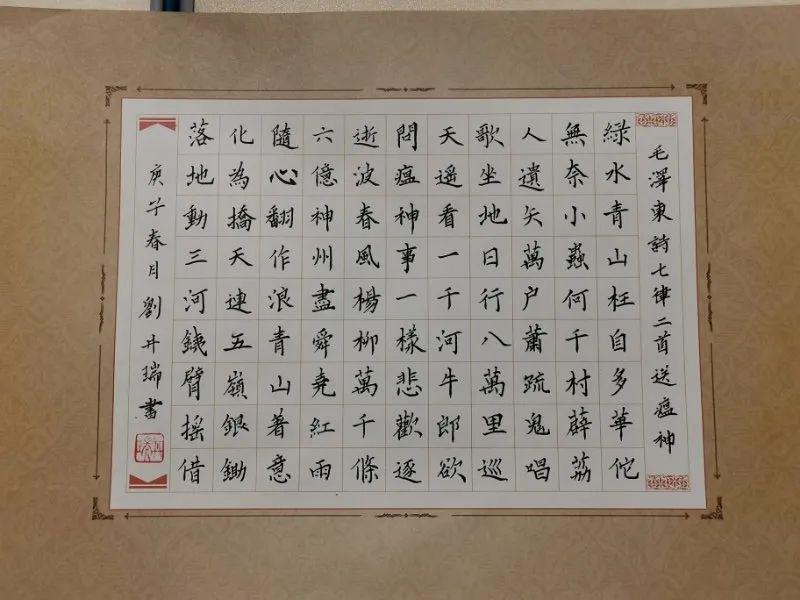 毛澤東詩七律二首送瘟神
綠水青山枉自多華佗
無奈小蟲何千村薜荔
人遺矢萬户蕭疏鬼唱
歌坐地日行八萬里巡
天遥看一千河牛郎欲
問瘟神事一樣悲歡逐
逝波春風楊柳萬千條
六億神州盡舜堯紅雨
隨心翻作浪青山着意
化為橋天連五嶺銀鋤
落地動三河鐵臂搖借
庚子春月劉井瑞書